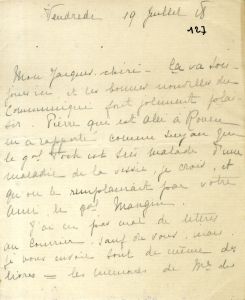 Vendredi 19 Juillet 18
127
Mon Jacques chéri - Ça va tou-
jours ici, et les bonnes nouvelles du
Communiqué font joliment plai
sir. Pierre qui est allé à Rouen
m'a rapporté comme que
le gal Foch est très malade d'une
maladie de la vessie, je crois, et
qu'on le remplacerait par votre
ami le gal Mangin.
J'ai eu pas mal de lettres
au courrier, sauf de vous, mais
je vous envoie tout de même des
livres - les mémoires de Me de